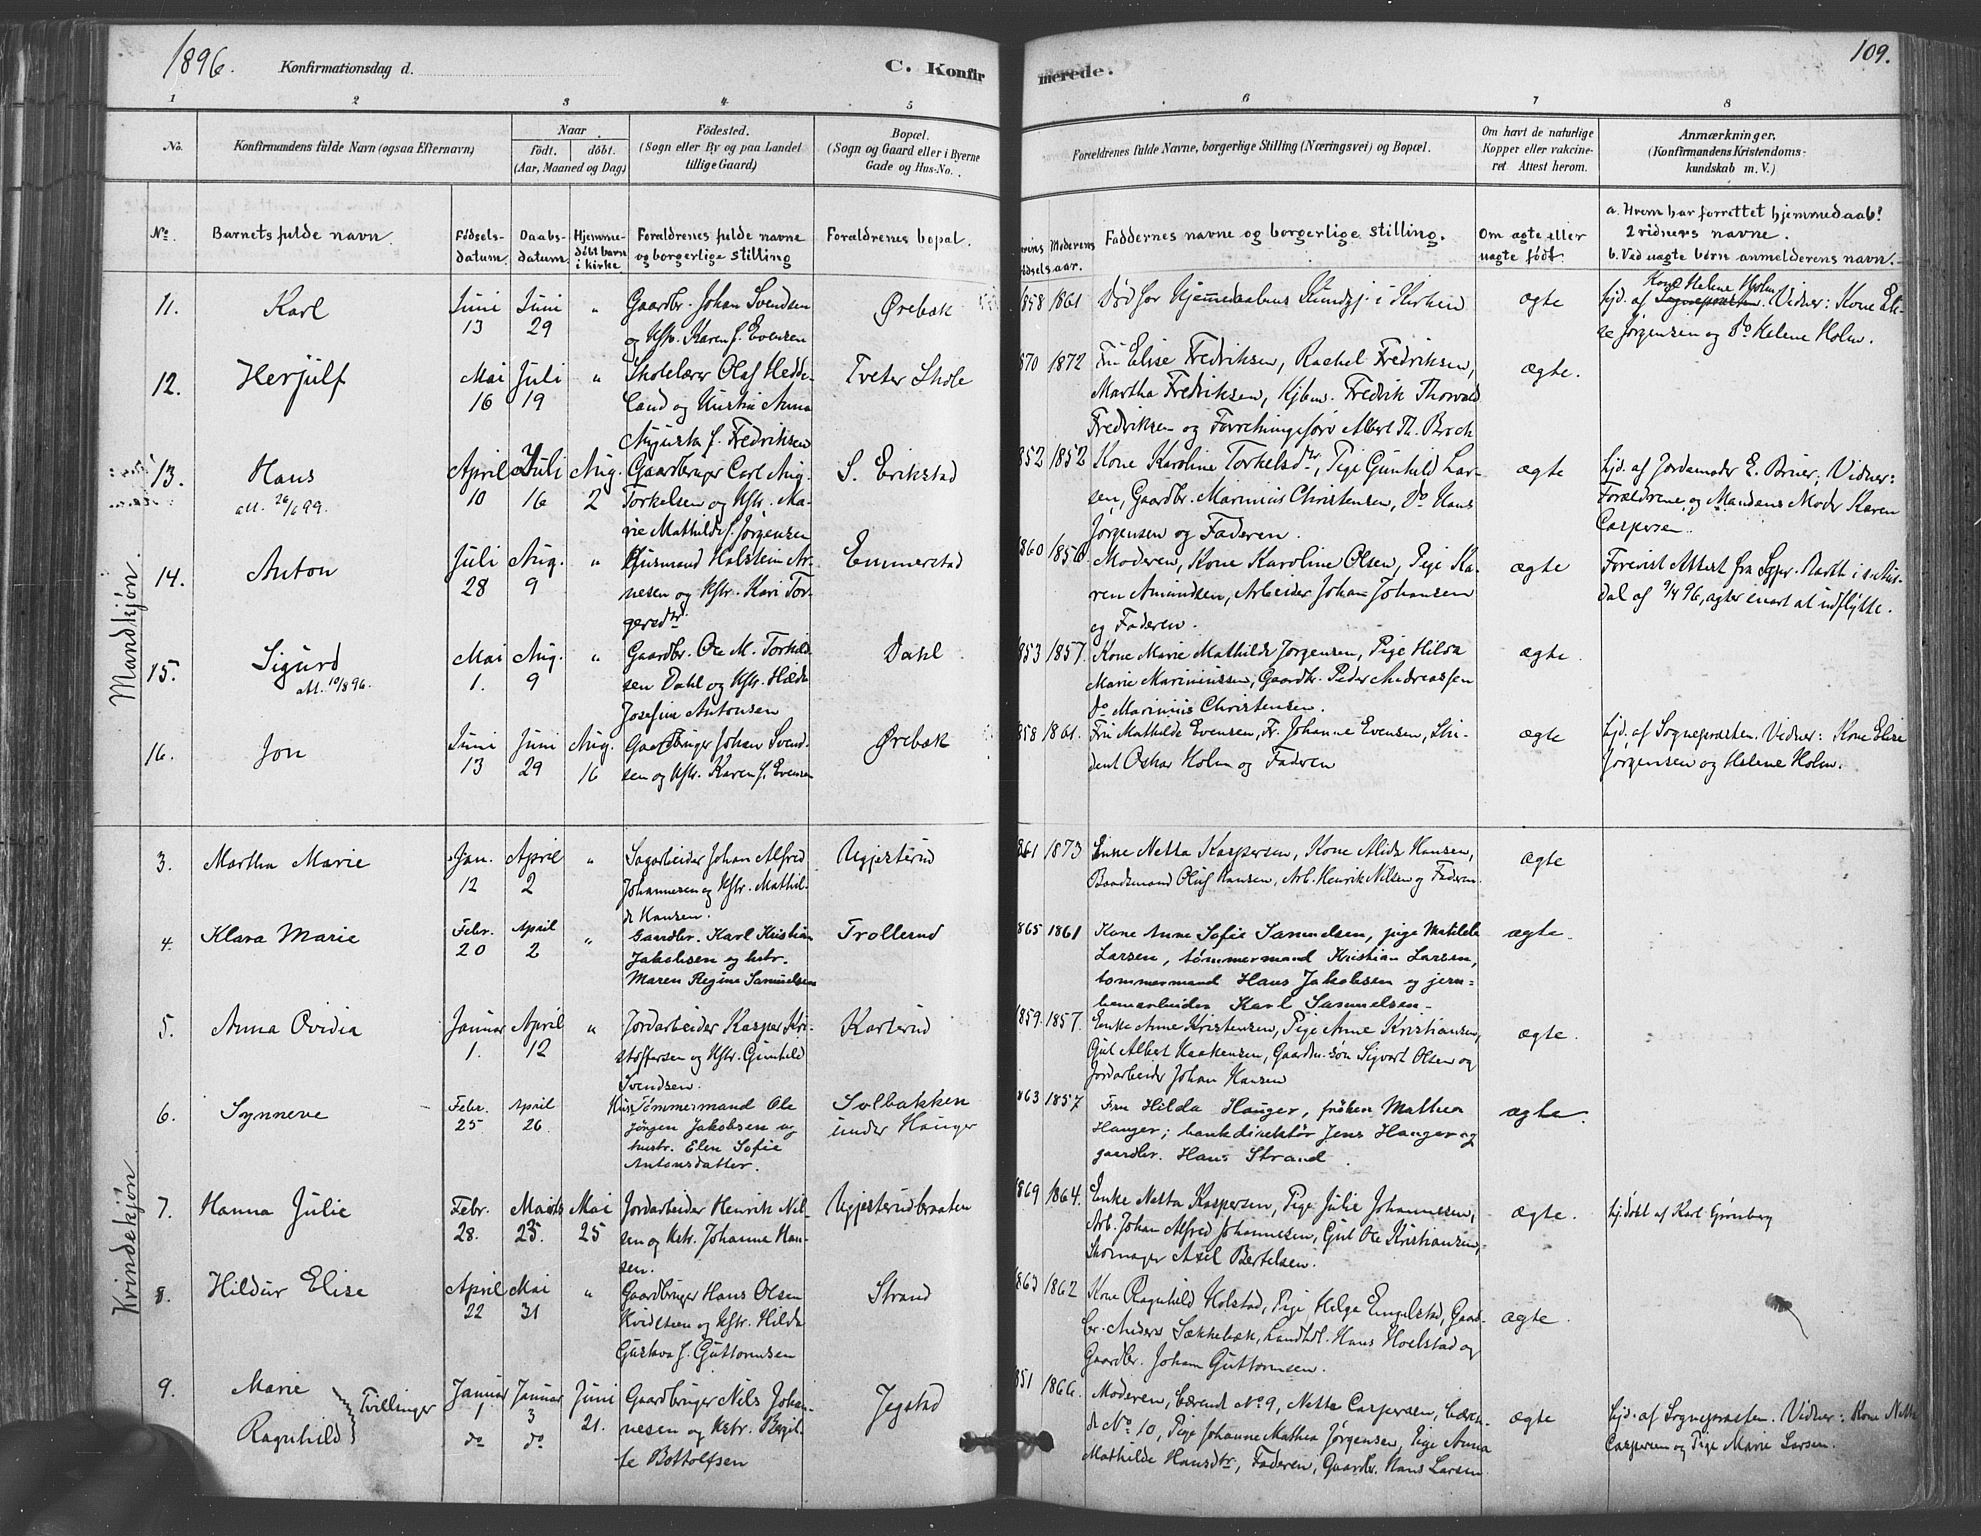 1896.
Konfirmationsdag d.
C. Konfir
merede.
109.
1 2 3 4 5 6 7 8
No.
Konfirmandens fulde Navn (ogsaa Efternavn)
Naar
født. døbt.
(Aar, Maaned og Dag)
Fødested.
(Sogn eller By og paa Landet
tillige Gaard)
Bopæl.
(Sogn og Gaard eller i Byerne
Gade og Hus-No.
Forældrenes fulde Navne, borgerlige Stilling (Næringsvei) og Bopæl.
Om havt de naturlige
Kopper eller vakcine-
ret Attest herom.
Anmærkninger.
(Konfirmandens Kristendoms-
kundskab m. V.)
No.
Barnets fulde navn.
Fødsels-
datum.
Daabs-
datum.
Hjemme-
døbt barn
i kirke
Forældrenes fulde navne
og borgerlige stilling
Forældrenes bopæl.
Moderens
aar.
Faddernes navne og borgerlige stilling.
Om ægte eller
uægte født.
a. Hvem har forrettet hjemmedaab?
2 vidners navne.
b. Ved uægte børn anmelderens navn.
Mandkjøn.
11.
Karl
Juni
13
Juni
29
"
Gaardbr. Johan Svendsen
og Hstr. Karen f. Evensen
Ørebæk
1858 1861
Død før Hjemmedaabens Stadfj. i Kirken
ægte
Kone Helene Holm
hjd. af Sognepræsten. Vidner: Kone Eli-
se Jørgensen og do Helene Holm.
12.
Herjulf
Mai
16
Juli
19
"
Skolelærer Olaf Hedde-
land og Hustru Anna
Augusta f. Fredriksen
Tveter Skole
1870 1872
Fru Elise Fredriksen, Rachel Fredriksen,
Martha Fredriksen, Kjbm. Fredrik Thorvald
Fredriksen og Forretningsfører Albert Th. Broch
ægte.
13.
Hans
att. 26/6 99.
April
10
Juli
16
Aug.
2
Gaardbruger Carl Aug.
Torkelsen og Hstr. Ma-
rie Mathilde f. Jørgensen
S. Erikstad
1852 1852
Kone Karoline Torkelsdtr, Pige Gunhild Lar-
sen, Gaardbr. Marinius Christensen, Do Hans
Jørgensen og Faderen.
ægte
hjd. af Jordemoder E. Brüer, Vidner:
Forældrene og Mandens Moder Karen
Caspersen.
14.
Anton
Juli
28
Aug.
9
"
Husmand Halstein Ar-
nesen og Hstr. Kari Tor-
geresdtr.
Emmerstad
1860 1856
Moderen, Kone Karoline Olsen, Pige Ka-
ren Amundsen, Arbeider Johan Johansen
og Faderen.
ægte
Forevist Attest fra Sgpr. Barth i s. Aur-
dal af 9/4 96, agter snart at udflytte.
15.
Sigurd
att. 10/8 96.
Mai
1.
Aug.
9
"
Gaardbr. Ole M. Torkild-
sen Dahl og Hstr. Hilda
Josefine Antonsen
Dahl
1853 1857
Kone Marie Mathilde Jørgensen, Pige Hilda
Marie Mariniussen, Gaardbr. Peder Andreassen
do Marinius Christensen.
ægte
16.
Jon
Juni
13
Juni
29
Aug.
16
Gaardbruger Johan Svend-
sen og Hstr. Karen f. Evensen
Ørebæk
1858 1861.
Fru Mathilde Evensen, Fr. Johanne Evensen, Stu-
dent Oskar Holm og Faderen
ægte
hjd. af Sognepræsten. Vidner: Kone Elise
Jørgensen og Helene Holm.
Kvindekjøn.
3.
Martha Marie
Jan.
12
April
2
"
Sagarbeider Johan Alfred
Johannesen og Hstr. Mathil-
de Hansen.
Ugjesterud
1861 1873
Enke Netta Kaspersen, Kone Alida Hansen,
Baadsmand Oluf Hansen, Arb. Henrik Nilsen og Faderen.
ægte
4.
Klara Marie
Febr.
20
April
2
"
Gaardbr. Karl Kristian
Jakobsen og hstr.
Maren Regine Samuelsen
Trollerud
1865 1861
Kone Anne Sofie Samuelsen, pige Matilde
Larsen, tømmermand Kristian Larsen,
tømmermand Hans Jakobsen og jern-
banearbeider Karl Samuelsen.
ægte.
5.
Anna Ovidia
Januar
1.
April
12
"
Jordarbeider Kasper Kri-
stoffersen og Hstr. Gunhild
Svendsen.
Karlsrud
1859. 1857.
Enke Anne Kristensen, Pige Anne Kristiansen,
Gut Albert Haakensen, Gaardm.søn Sigvart Olsen og
Jordarbeider Johan Hansen
ægte.
6.
Synneve
Febr.
25
April
26
Tømmermand Ole
Jørgen Jakobsen og
hustr. Elen Sofie
Antonsdatter.
Solbakken
under Hauger
1863 1857
Fru Hilda Hauger, frøken Mathea
Hauger, bankdirektør Jens Hauger og
gaardbr. Hans Strand.
ægte.
7.
Hanna Julie
Febr.
28.
Marts
25.
Mai
25
Jordarbeider Henrik Nil-
sen og Hstr. Johanne Han-
sen.
Ugjesterudbraaten
1869 1864.
Enke Netta Kaspersen, Pige Julie Johannesen,
Arb. Johan Alfred Johannesen, Gut Ole Kristiansen,
Skomager Axel Bertelsen.
ægte.
hj.døbt af Karl Grønberg
8.
Hildur Elise
April
22
Mai
31
"
Gaardbruger Hans Olsen
Kvidsteen og Hstr. Hilda
Gustava f. Guttormsen
Strand
1863 1862
Kone Ragnhild Holstad, Pige Helga Engelstad, Gaard-
br. Anders Sækkebæk, Landhdl. Hans Hoelstad og
Gaardbr. Johan Guttormsen.
ægte.
9.
Marie
Ragnhild
Tvillinger
Januar
1
do
Januar
3
do
Juni
21.
Gaardbruger Nils Johan-
nesen og Hstr. Bergit-
te Bottolfsen
Jegstad
1851 1866.
Moderen, bærende No 9, Netta Caspersen, bæren-
de No 10, Pige Johanne Mathea Jørgensen, Pige Anna
Mathilde Hansdtr, Faderen, Gaardbr. Hans Larsen
ægte
hjd. af Sognepræsten. Vidner: Kone Netta
Caspersen og Pige Marie Larsen.